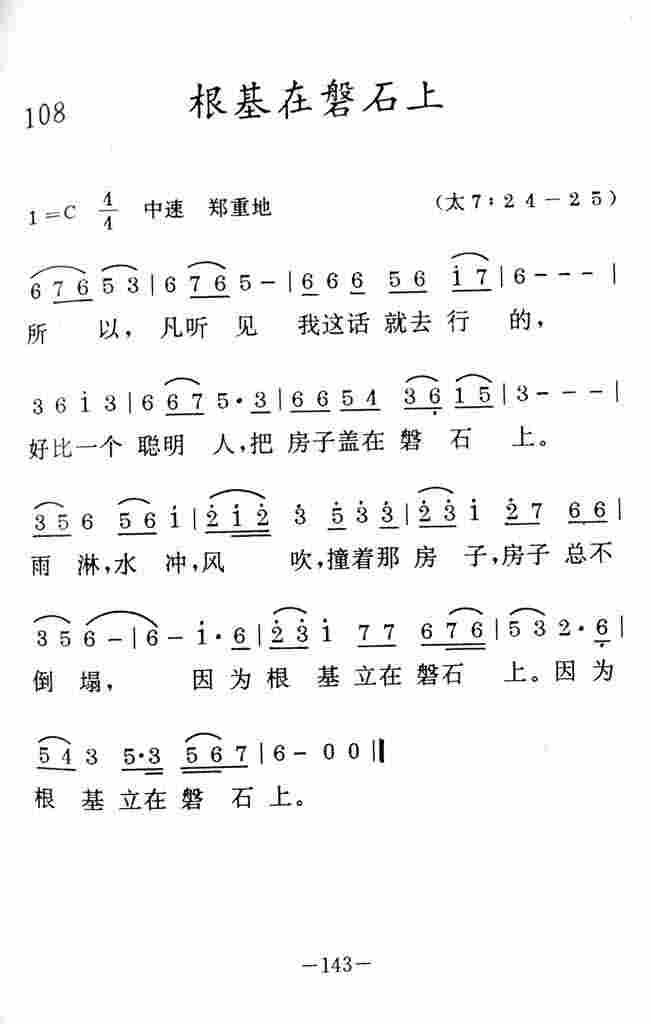 108
根基在磐石上
1=C 4/4 中速 郑重地 (太7:24-25)
6 7 6 5 3 | 6 7 6 5 - | 6 6 6 5 6 i 7 | 6 - - - |
所 以, 凡听 见 我这话 就去 行 的,
3 6 i 3 | 6 6 7 5 · 3 | 6 6 5 4 3 6̣ 1 5 | 3 - - - |
好比一个 聪明 人,把 房子盖在 磐 石 上。
3 5 6 5 6 i | 2̇ i 2̇ 3̇ 5̇ 3̇ 3̇ | 2̇ 3̇ i 2̇ 7 6 6 |
雨 淋,水 冲,风 吹,撞着那 房 子,房子 总不
3 5 6 - | 6 - i · 6 | 2̇ 3̇ i 7 7 6 7 6 | 5 3 2 · 6̣ |
倒 塌, 因为 根 基 立在 磐石 上。因为
5 4 3 5 · 3 5 6 7 | 6 - 0 0 ||
根 基 立在 磐 石 上。
-143-